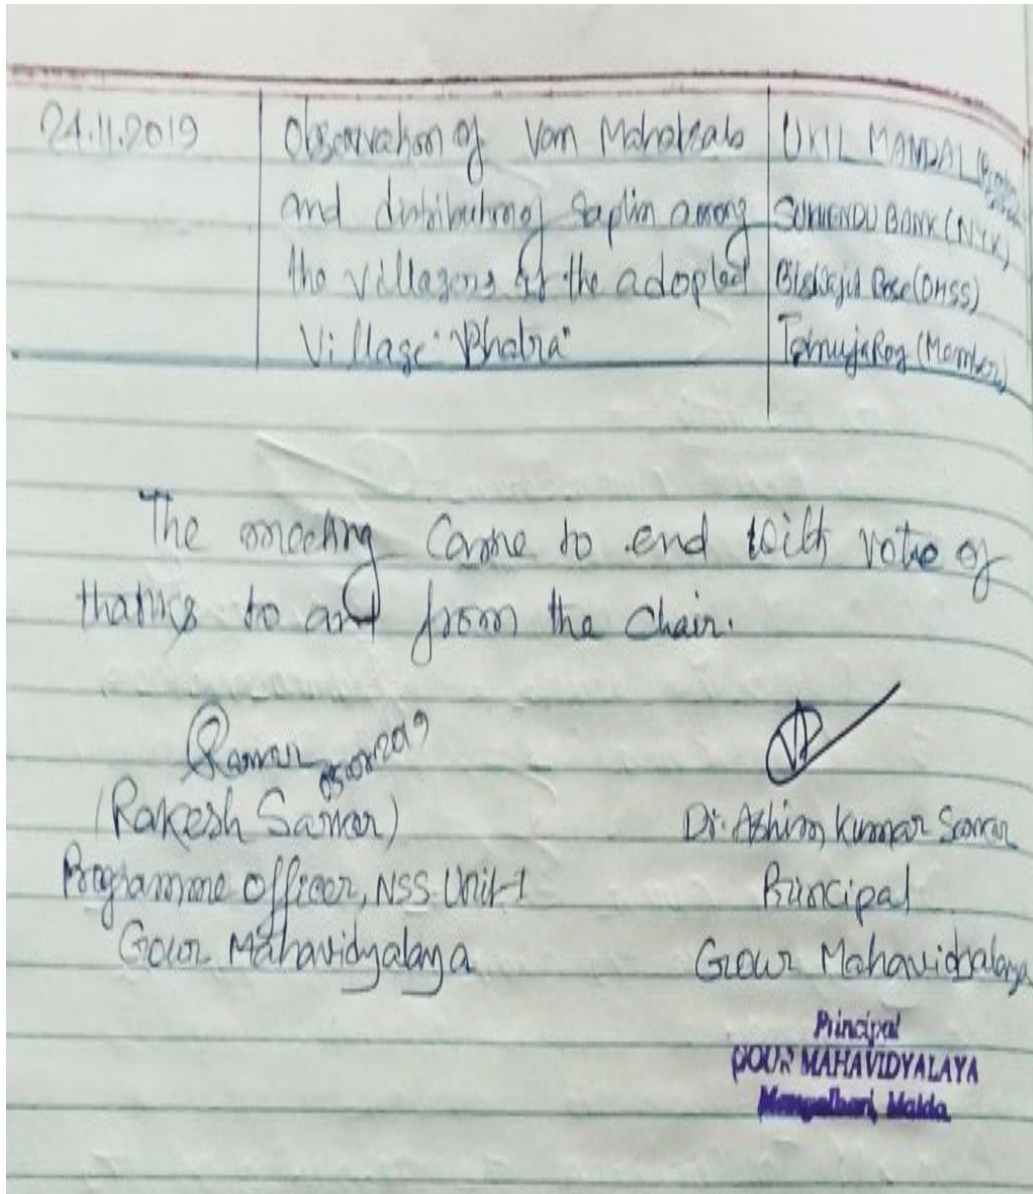 24.11.2019
Observation of Vom Mahotsab
and distribution of Saplin among
the villagers of the adopted
Village "Bhabra"
UKIL MANDAL
SUKHENDU BANIK (NYK)
Bishwajit Bose (DHSS)
Tanuja Roy (Member)
The meeting Came to end with vote of
thanks to and from the Chair.
2019
(Rakesh Sarkar)
Programme Officer, NSS Unit-1
Gour Mahavidyalaya
Dr. Ashim Kumar Sarkar
Principal
Gour Mahavidyalaya
Principal
GOUR MAHAVIDYALAYA
Mangalbari, Malda